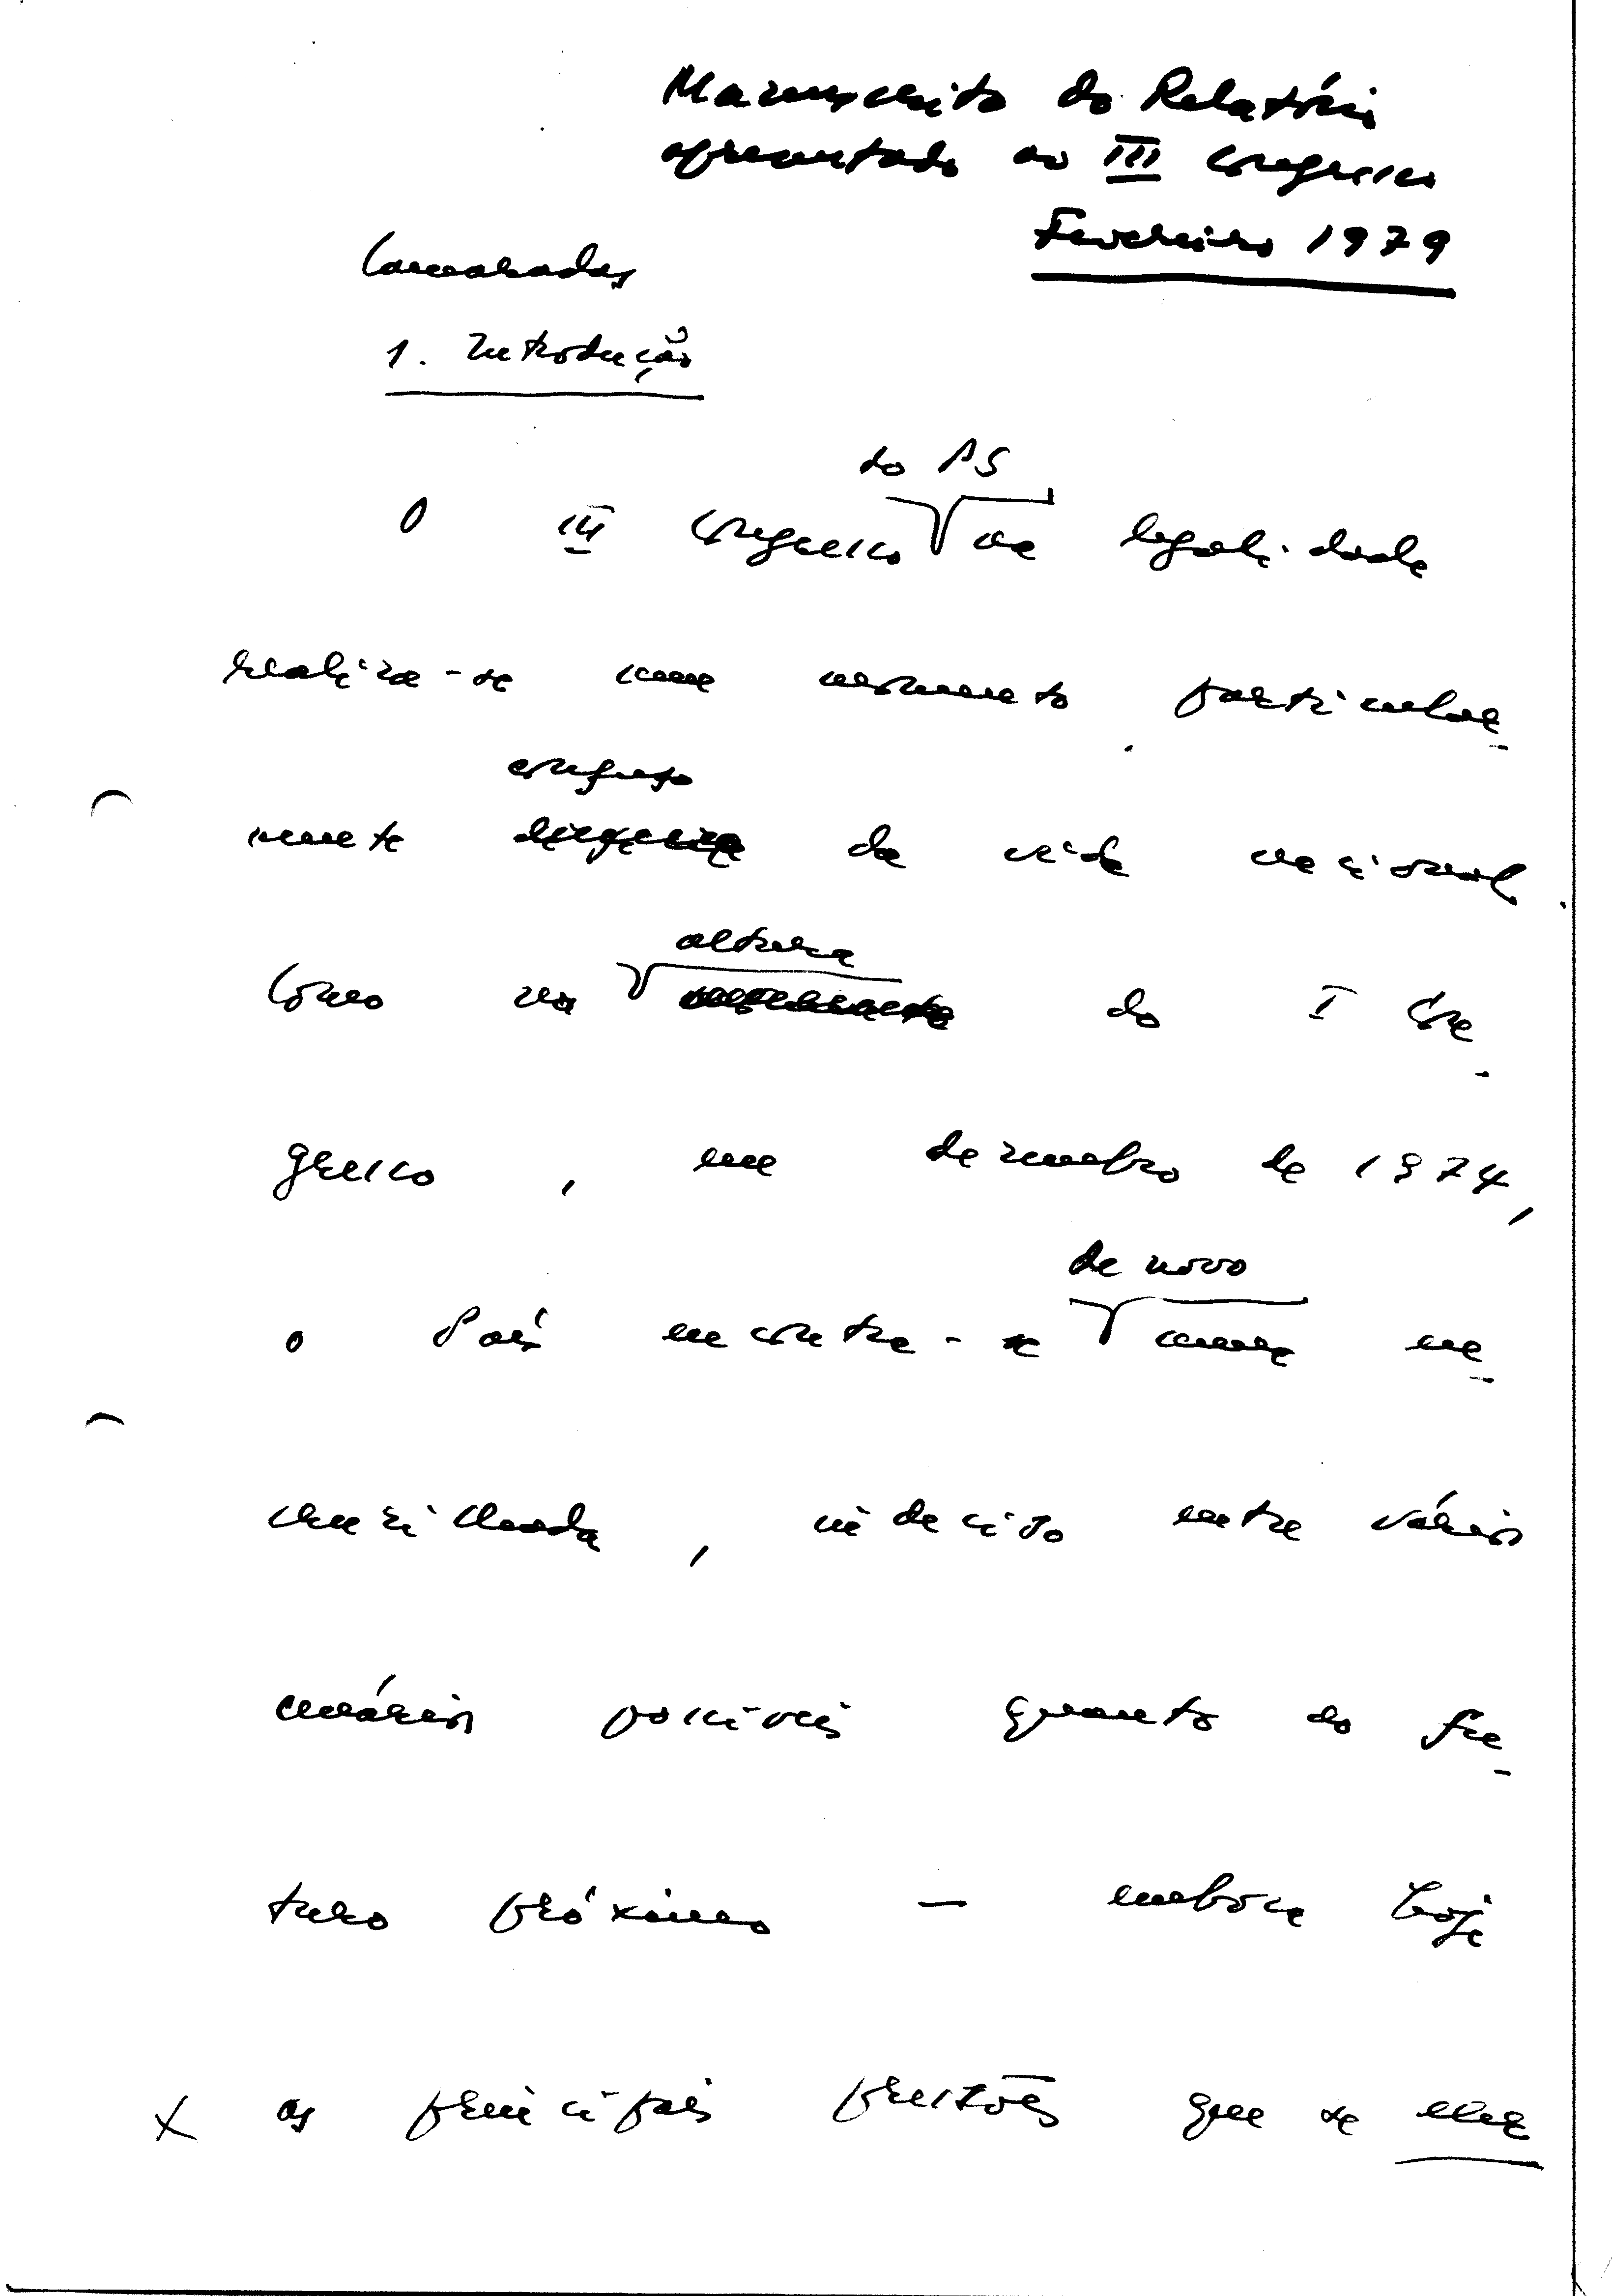 Manuscrito do Relatório
apresentado ao III Congresso
Fevereiro 1979
Camaradas
1. Introdução
do PS
O III Congresso na legalidade
realiza-se num momento particular-
confuso
mente da vida nacional.
altura
Como na do I Con-
gresso, em dezembro de 1974,
de novo
o País encontra-se numa en-
cruzilhada, indeciso entre vários
cenários possíveis quanto ao fu-
turo próximo — embora hoje
X as principais questões que se